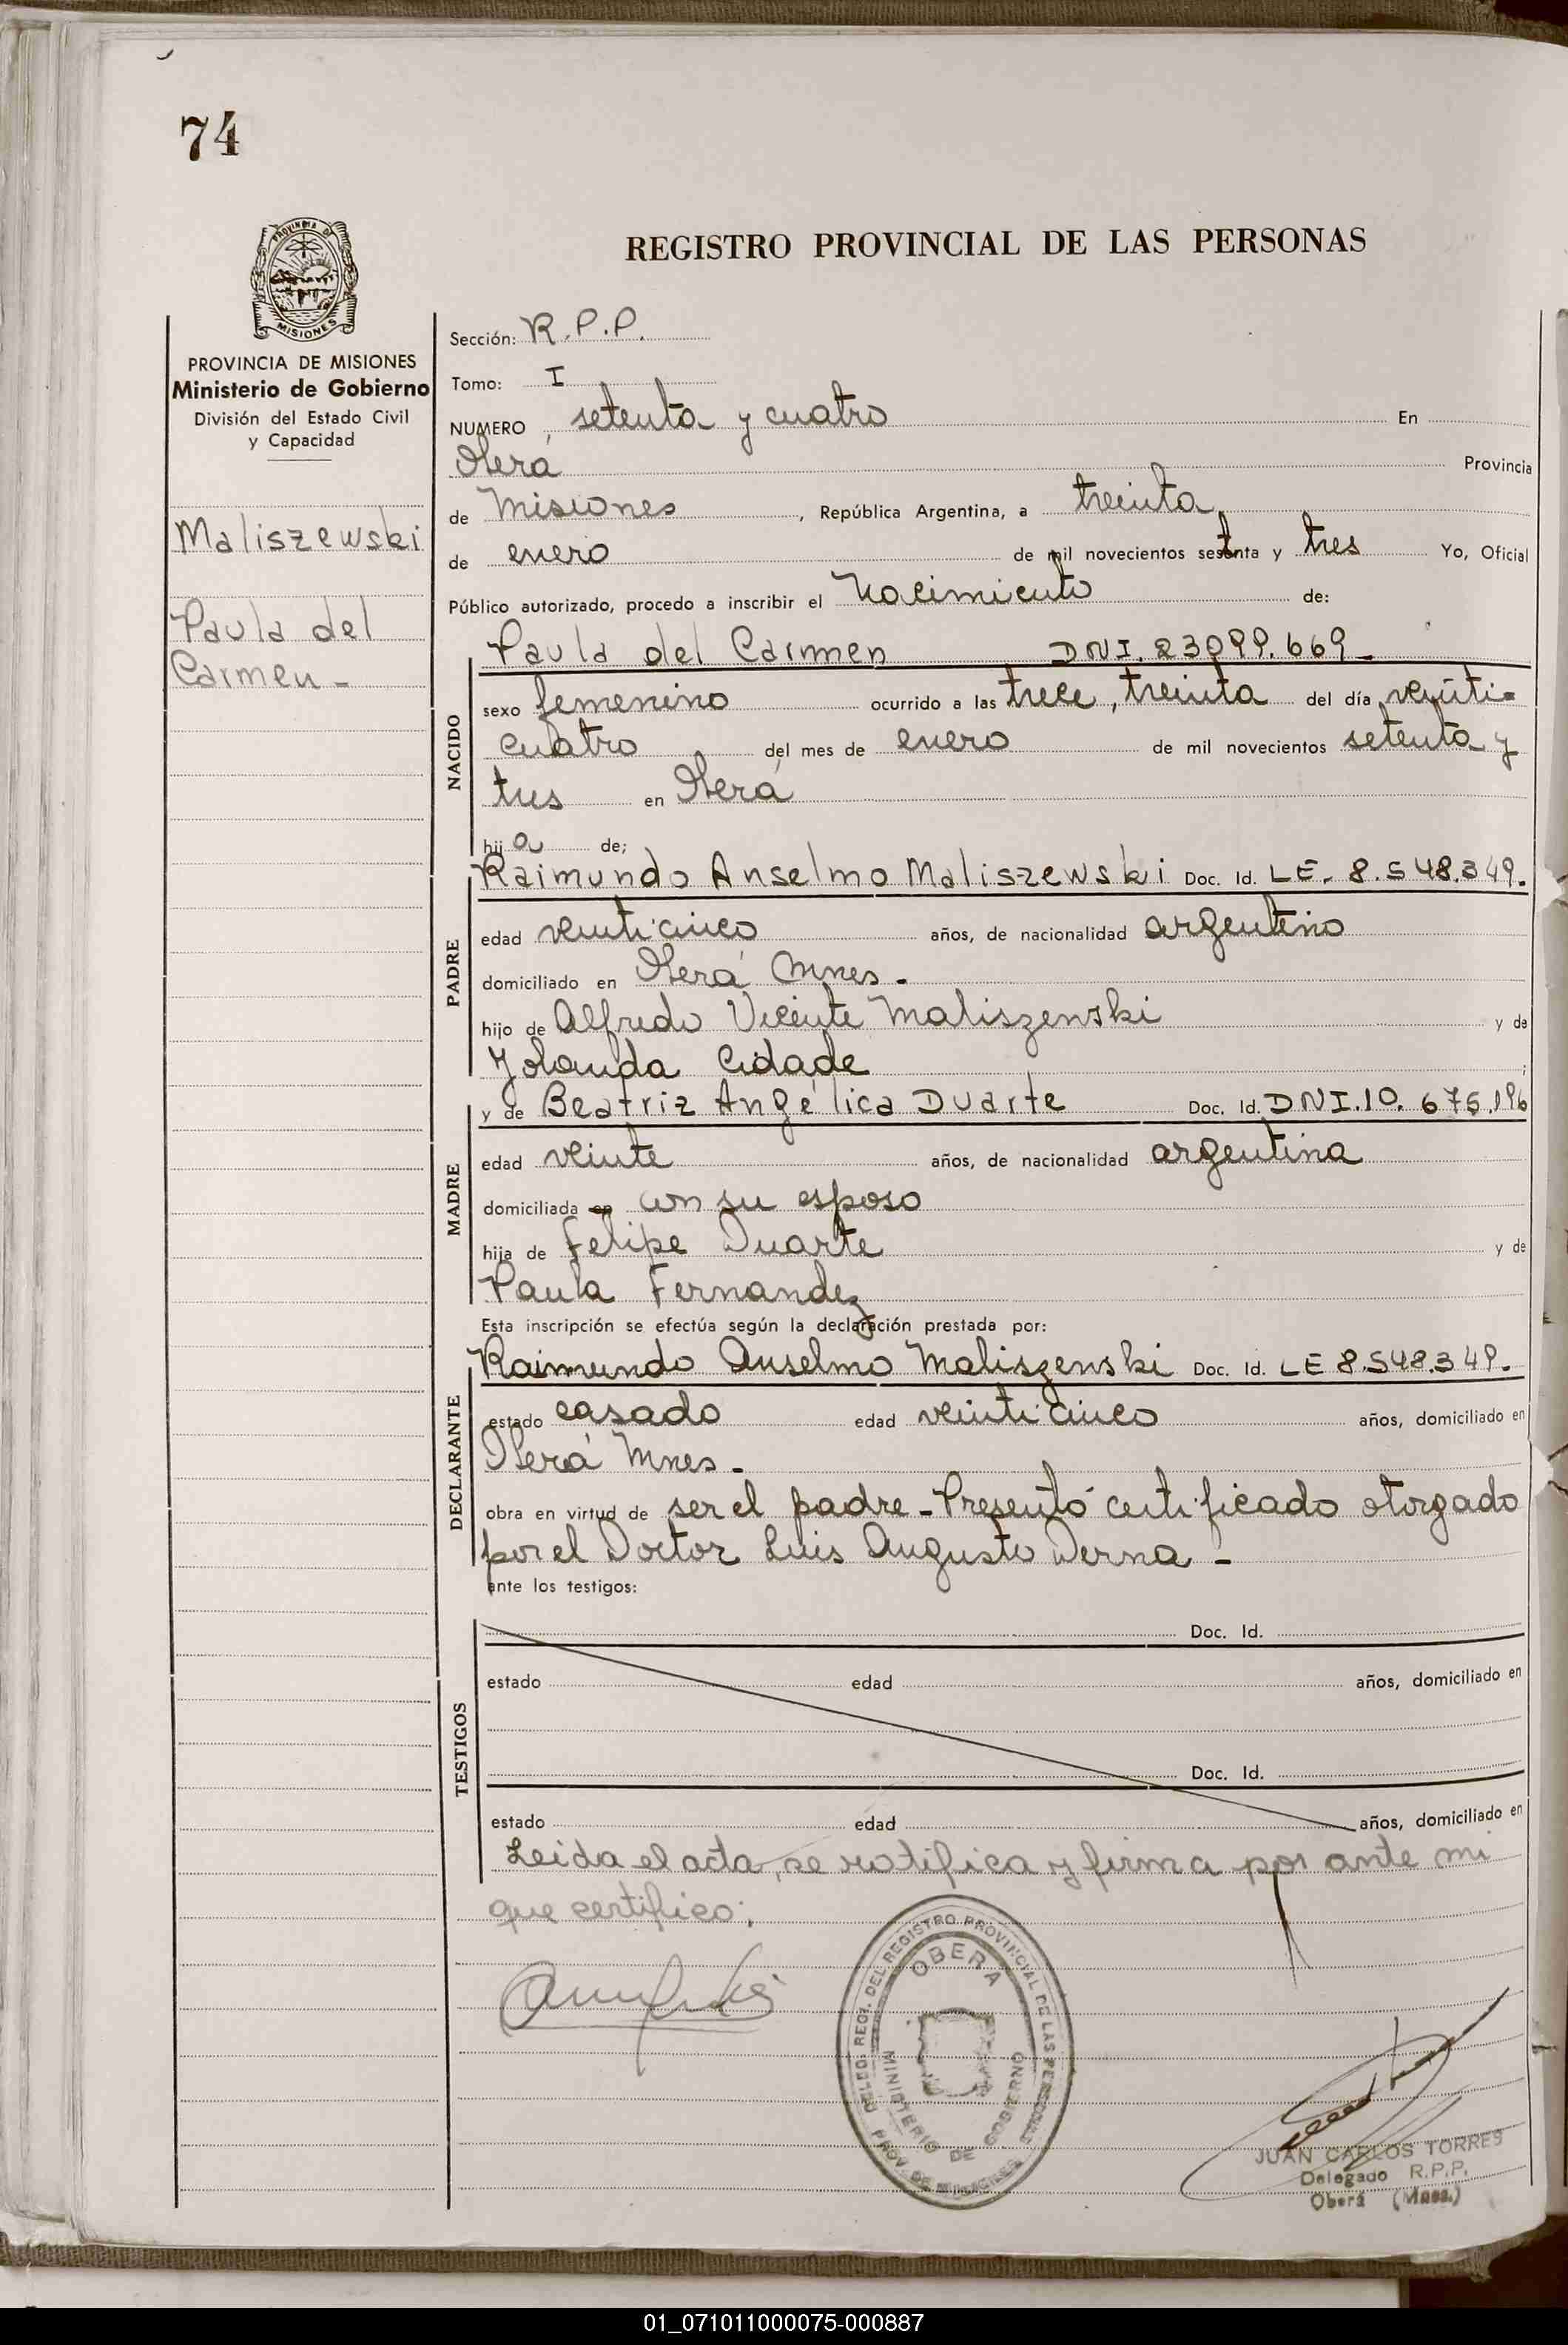 74
PROVINCIA DE
MISIONES
REGISTRO PROVINCIAL DE LAS PERSONAS
PROVINCIA DE MISIONES
Ministerio de Gobierno
División del Estado Civil
y Capacidad
Maliszewski
Paula del
Carmen -
Sección: R.P.P.
Tomo: I
NUMERO setenta y cuatro En
Oberá Provincia
de Misiones, República Argentina, a treinta
de enero de mil novecientos setenta y tres Yo, Oficial
Público autorizado, procedo a inscribir el Nacimiento de:
NACIDO
Paula del Carmen DNI. 23099.669-
sexo femenino ocurrido a las trece, treinta del día veinti=
cuatro del mes de enero de mil novecientos setenta y
tres en Oberá
hij a de;
PADRE
Raimundo Anselmo Maliszewski Doc. Id. LE. 8.548.349.
edad veinticinco años, de nacionalidad argentino
domiciliado en Oberá Mnes.
hijo de Alfredo Vicente Maliszewski y de
Yolanda Cidade ;
MADRE
y de Beatriz Angélica Duarte Doc. Id. DNI.10.675.196
edad veinte años, de nacionalidad argentina
domiciliada en con su esposo
hija de Felipe Duarte y de
Paula Fernandez
Esta inscripción se efectúa según la declaración prestada por:
DECLARANTE
Raimundo Anselmo Maliszewski Doc. Id. LE 8.548.349.
estado casado edad veinticinco años, domiciliado en
Oberá Mnes.
obra en virtud de ser el padre - Presentó certificado otorgado
por el Doctor Luis Augusto Derna -
ante los testigos:
TESTIGOS
Doc. Id.
estado edad años, domiciliado en
Doc. Id.
estado edad años, domiciliado en
Leida el acta, se ratifica y firma por ante mi
que certifico:
DELEG. REGI. DEL REGISTRO PROVINCIAL DE LAS PERSONAS
OBERA
MINISTERIO DE GOBIERNO
PROV. DE MISIONES
JUAN CARLOS TORRES
Delegado R.P.P.
Oberá (Mnes.)
01_071011000075-000887